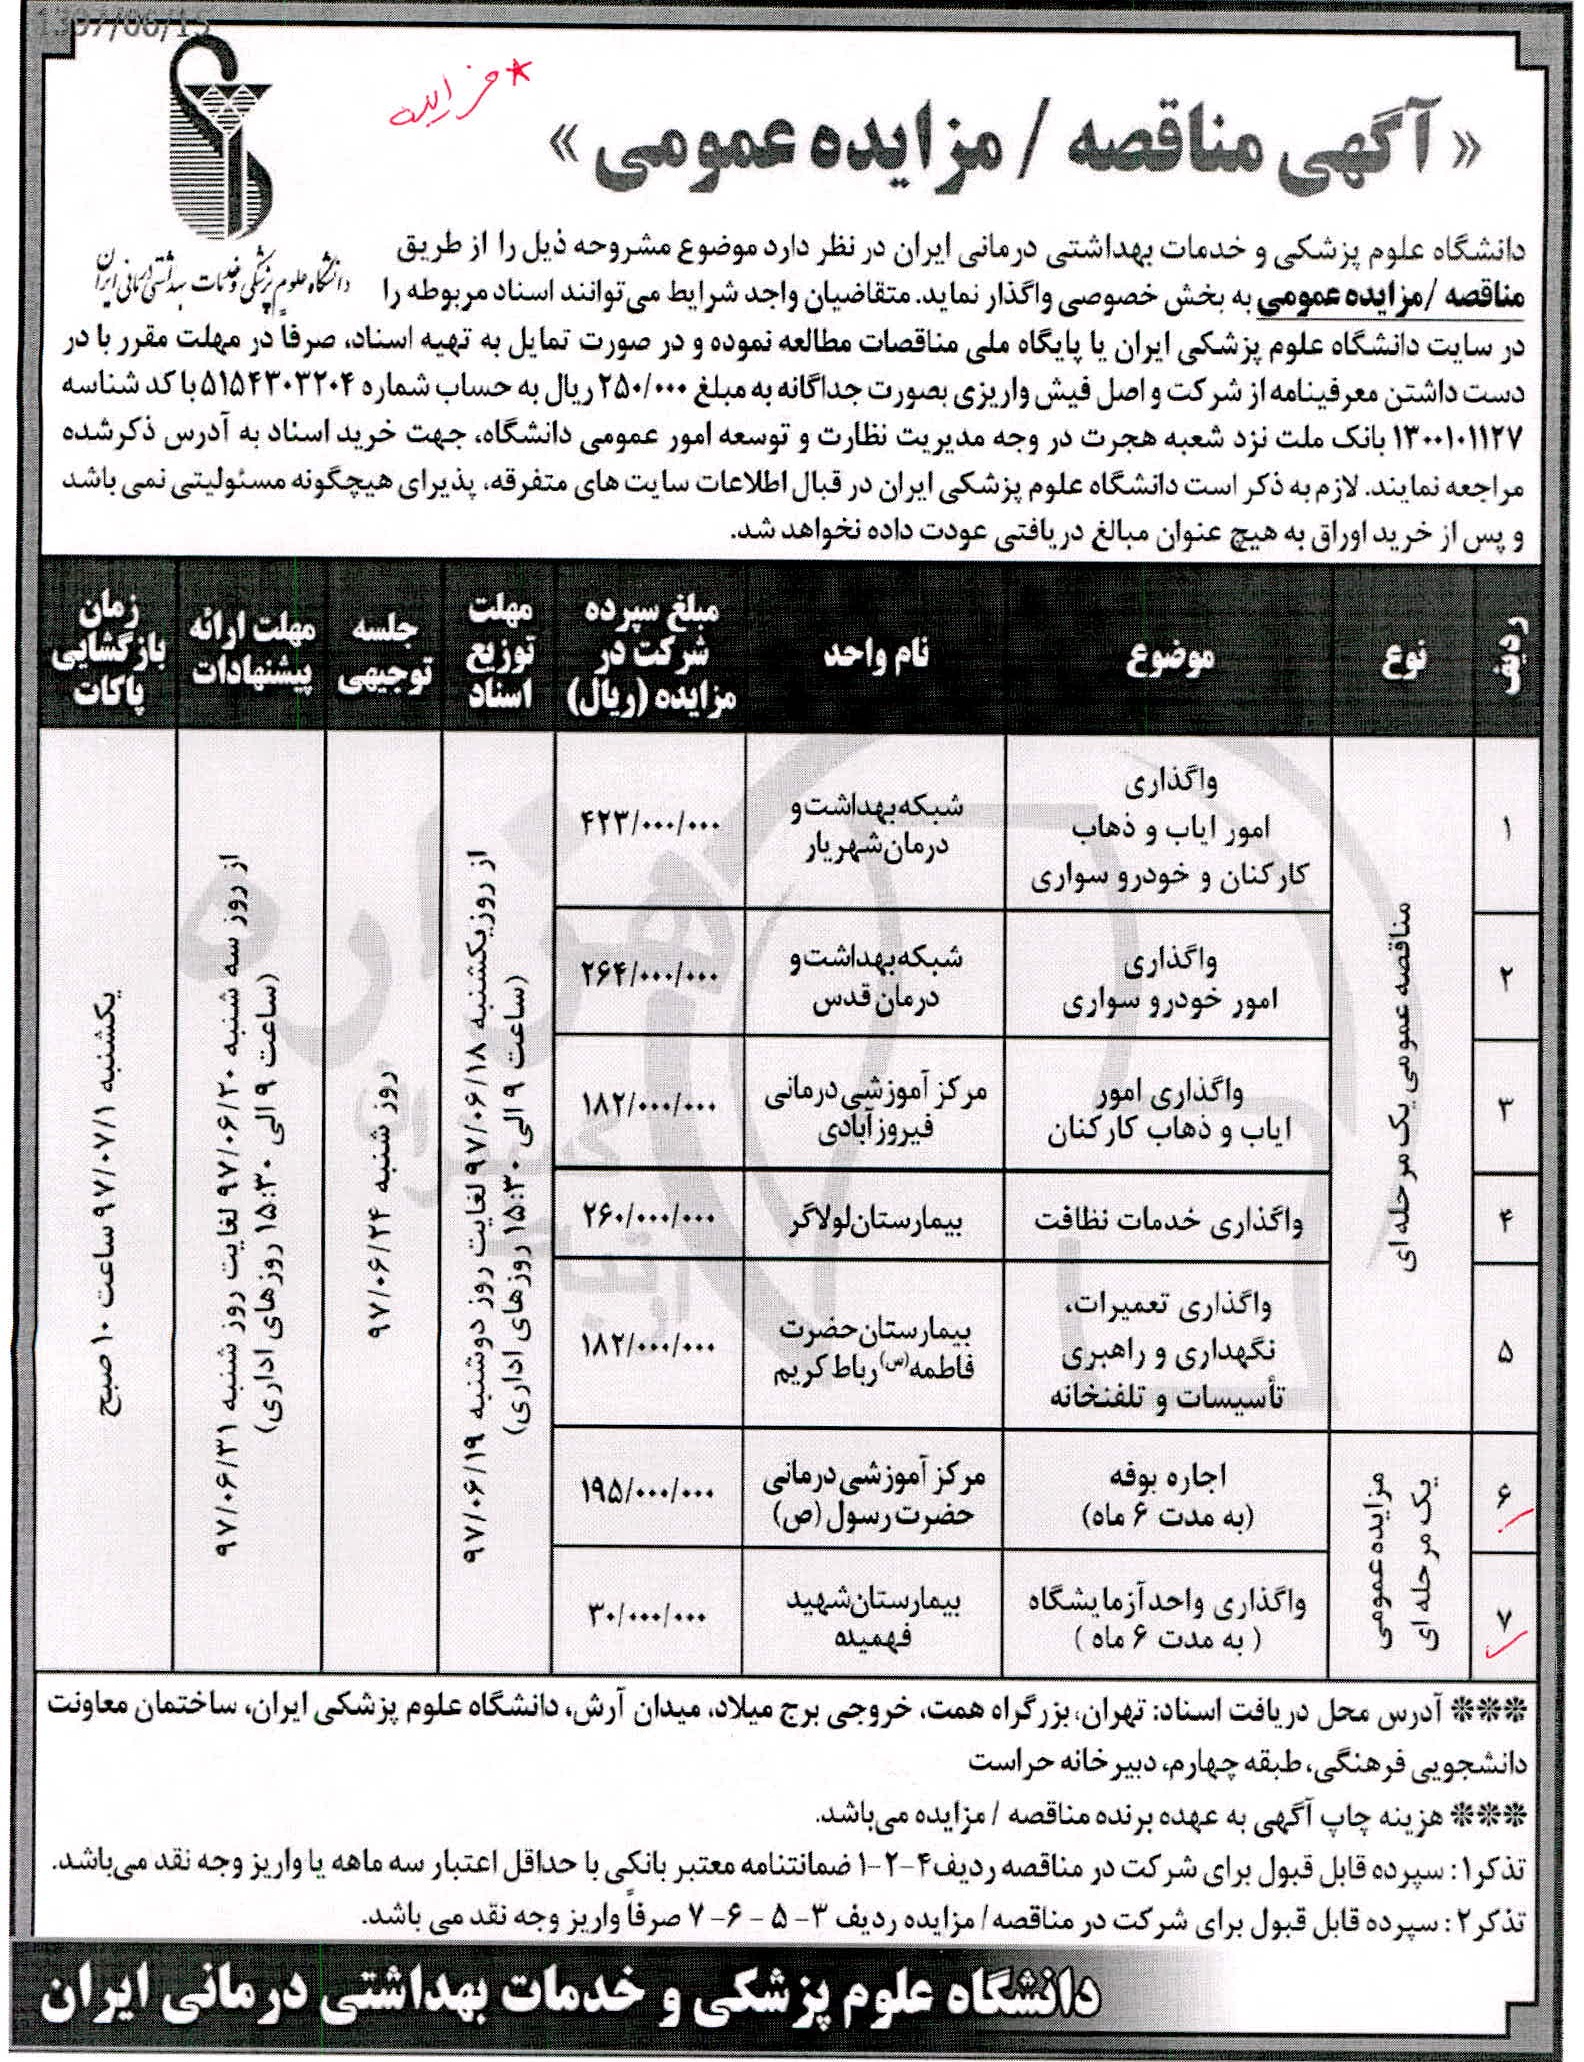 1397/06/15
* مزایده
« آگهی مناقصه / مزایده عمومی »
دانشگاه علوم پزشکی و خدمات بهداشتی درمانی ایران
دانشگاه علوم پزشکی و خدمات بهداشتی درمانی ایران در نظر دارد موضوع مشروحه ذیل را از طریق
مناقصه /مزایده عمومی به بخش خصوصی واگذار نماید. متقاضیان واجد شرایط می‌توانند اسناد مربوطه را
در سایت دانشگاه علوم پزشکی ایران یا پایگاه ملی مناقصات مطالعه نموده و در صورت تمایل به تهیه اسناد، صرفاً در مهلت مقرر با در
دست داشتن معرفینامه از شرکت و اصل فیش واریزی بصورت جداگانه به مبلغ ۲۵۰/۰۰۰ ریال به حساب شماره ۵۱۵۴۳۰۳۲۰۴ با کد شناسه
۱۳۰۰۱۰۱۱۲۷ بانک ملت نزد شعبه هجرت در وجه مدیریت نظارت و توسعه امور عمومی دانشگاه، جهت خرید اسناد به آدرس ذکرشده
مراجعه نمایند. لازم به ذکر است دانشگاه علوم پزشکی ایران در قبال اطلاعات سایت های متفرقه، پذیرای هیچگونه مسئولیتی نمی باشد
و پس از خرید اوراق به هیچ عنوان مبالغ دریافتی عودت داده نخواهد شد.
ردیف
نوع
موضوع
نام واحد
مبلغ سپرده
شرکت در
مزایده (ریال)
مهلت
توزیع
اسناد
جلسه
توجیهی
مهلت ارائه
پیشنهادات
زمان
بازگشایی
پاکات
مناقصه عمومی یک مرحله ای
۱
واگذاری
امور ایاب و ذهاب
کارکنان و خودرو سواری
شبکه بهداشت و
درمان شهریار
۴۲۳/۰۰۰/۰۰۰
۲
واگذاری
امور خودرو سواری
شبکه بهداشت و
درمان قدس
۲۶۴/۰۰۰/۰۰۰
۳
واگذاری امور
ایاب و ذهاب کارکنان
مرکز آموزشی درمانی
فیروزآبادی
۱۸۲/۰۰۰/۰۰۰
۴
واگذاری خدمات نظافت
بیمارستان لولاگر
۲۶۰/۰۰۰/۰۰۰
۵
واگذاری تعمیرات،
نگهداری و راهبری
تأسیسات و تلفنخانه
بیمارستان حضرت
فاطمه (س) رباط کریم
۱۸۲/۰۰۰/۰۰۰
مزایده عمومی
یک مرحله ای
۶
اجاره بوفه
(به مدت ۶ ماه)
مرکز آموزشی درمانی
حضرت رسول (ص)
۱۹۵/۰۰۰/۰۰۰
۷
واگذاری واحد آزمایشگاه
( به مدت ۶ ماه )
بیمارستان شهید
فهمیده
۳۰/۰۰۰/۰۰۰
از روز یکشنبه ۹۷/۰۶/۱۸ لغایت روز دوشنبه ۹۷/۰۶/۱۹
(ساعت ۹ الی ۱۵:۳۰ روزهای اداری)
روز شنبه ۹۷/۰۶/۲۴
از روز سه شنبه ۹۷/۰۶/۲۰ لغایت روز شنبه ۹۷/۰۶/۳۱
(ساعت ۹ الی ۱۵:۳۰ روزهای اداری)
یکشنبه ۹۷/۰۷/۱ ساعت ۱۰ صبح
*** آدرس محل دریافت اسناد: تهران، بزرگراه همت، خروجی برج میلاد، میدان آرش، دانشگاه علوم پزشکی ایران، ساختمان معاونت
دانشجویی فرهنگی، طبقه چهارم، دبیرخانه حراست
*** هزینه چاپ آگهی به عهده برنده مناقصه / مزایده می‌باشد.
تذکر۱: سپرده قابل قبول برای شرکت در مناقصه ردیف۴-۲-۱ ضمانتنامه معتبر بانکی با حداقل اعتبار سه ماهه یا واریز وجه نقد می‌باشد.
تذکر۲: سپرده قابل قبول برای شرکت در مناقصه/ مزایده ردیف ۳- ۵ - ۶- ۷ صرفاً واریز وجه نقد می باشد.
دانشگاه علوم پزشکی و خدمات بهداشتی درمانی ایران